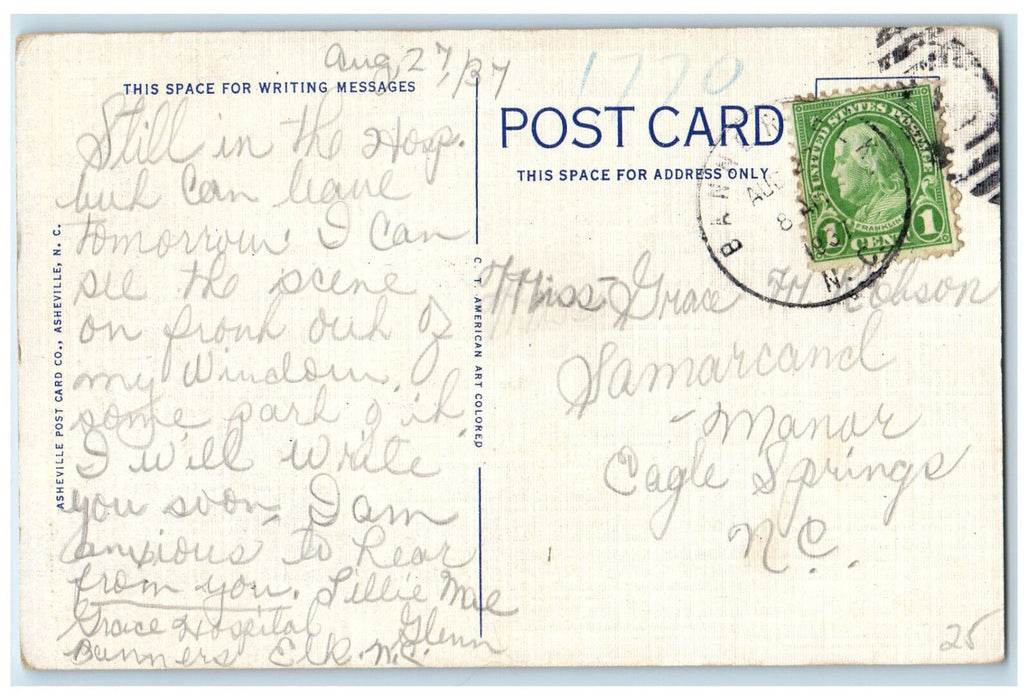 Aug 27/37
1770
THIS SPACE FOR WRITING MESSAGES
Still in the Hosp.
but can leave
tomorrow. I can
see the scene
on front out of
my window,
some part of it.
I will write
you soon. I am
anxious to hear
from you. Lillie Mae
Glenn
Grace Hospital
Banners Elk. N.C.
ASHEVILLE POST CARD CO., ASHEVILLE, N. C.
C. T. AMERICAN ART COLORED
POST CARD
THIS SPACE FOR ADDRESS ONLY
BANNER ELK
AUG
8 AM
1937
N. C.
UNITED STATES POSTAGE
FRANKLIN
1 CENT 1
Miss Grace
Samarcand
- Manor
Eagle Springs
N.C.
25